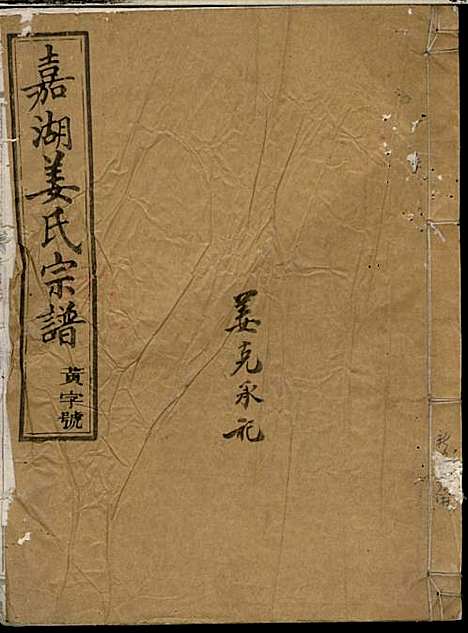 嘉湖姜氏宗譜
黃字號
姜克承記